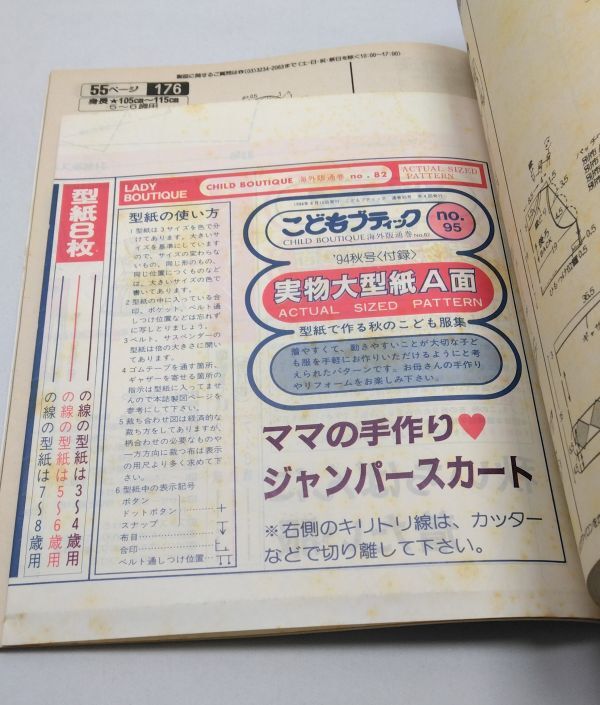 製図に関するご質問は☎(03)3234-2063まで(土・日・祝・祭日を除く10:00〜17:00)
55ページ 176
身長★105cm〜115cm
5〜6歳用
LADY BOUTIQUE
CHILD BOUTIQUE 海外版通巻 no.82
ACTUAL SIZED PATTERN
型紙8枚
の線の型紙は3〜4歳用
の線の型紙は5〜6歳用
の線の型紙は7〜8歳用
型紙の使い方
1 型紙は3サイズを色で
分けてあります。大きいサ
イズを基準にしています
ので、サイズの変わらな
いもの、同じ形のもの、
同じ位置につくものなど
は、大きいサイズの色で
書いてあります。
2 型紙の中に入っている合
印、ポケット、ベルト通
しつけ位置などは忘れず
に写しとりましょう。
3 ベルト、サスペンダーの
型紙は倍の大きさに開い
てあります。
4 ゴムテープを通す箇所、
ギャザーを寄せる箇所の
指示は型紙に入ってませ
んので本誌製図ページを
参考にして下さい。
5 裁ち合わせ図は経済的な
裁ち方をしてありますが、
柄合わせの必要なものや
一方方向に裁つ布は表示
の用尺より多く求めて下
さい。
6 型紙中の表示記号
ボタン
ドットボタン
スナップ
布目
合印
ベルト通しつけ位置
こどもブティック
CHILD BOUTIQUE 海外版通巻 No.82
no.95
'94秋号〈付録〉
実物大型紙A面
ACTUAL SIZED PATTERN
型紙で作る秋のこども服集
着やすくて、動きやすいことが大切な子ど
も服を手軽にお作りいただけるようにと考
えられたパターンです。お母さんの手作り
やリフォームをお楽しみ下さい。
ママの手作り♥
ジャンパースカート
※右側のキリトリ線は、カッター
などで切り離して下さい。
36.5